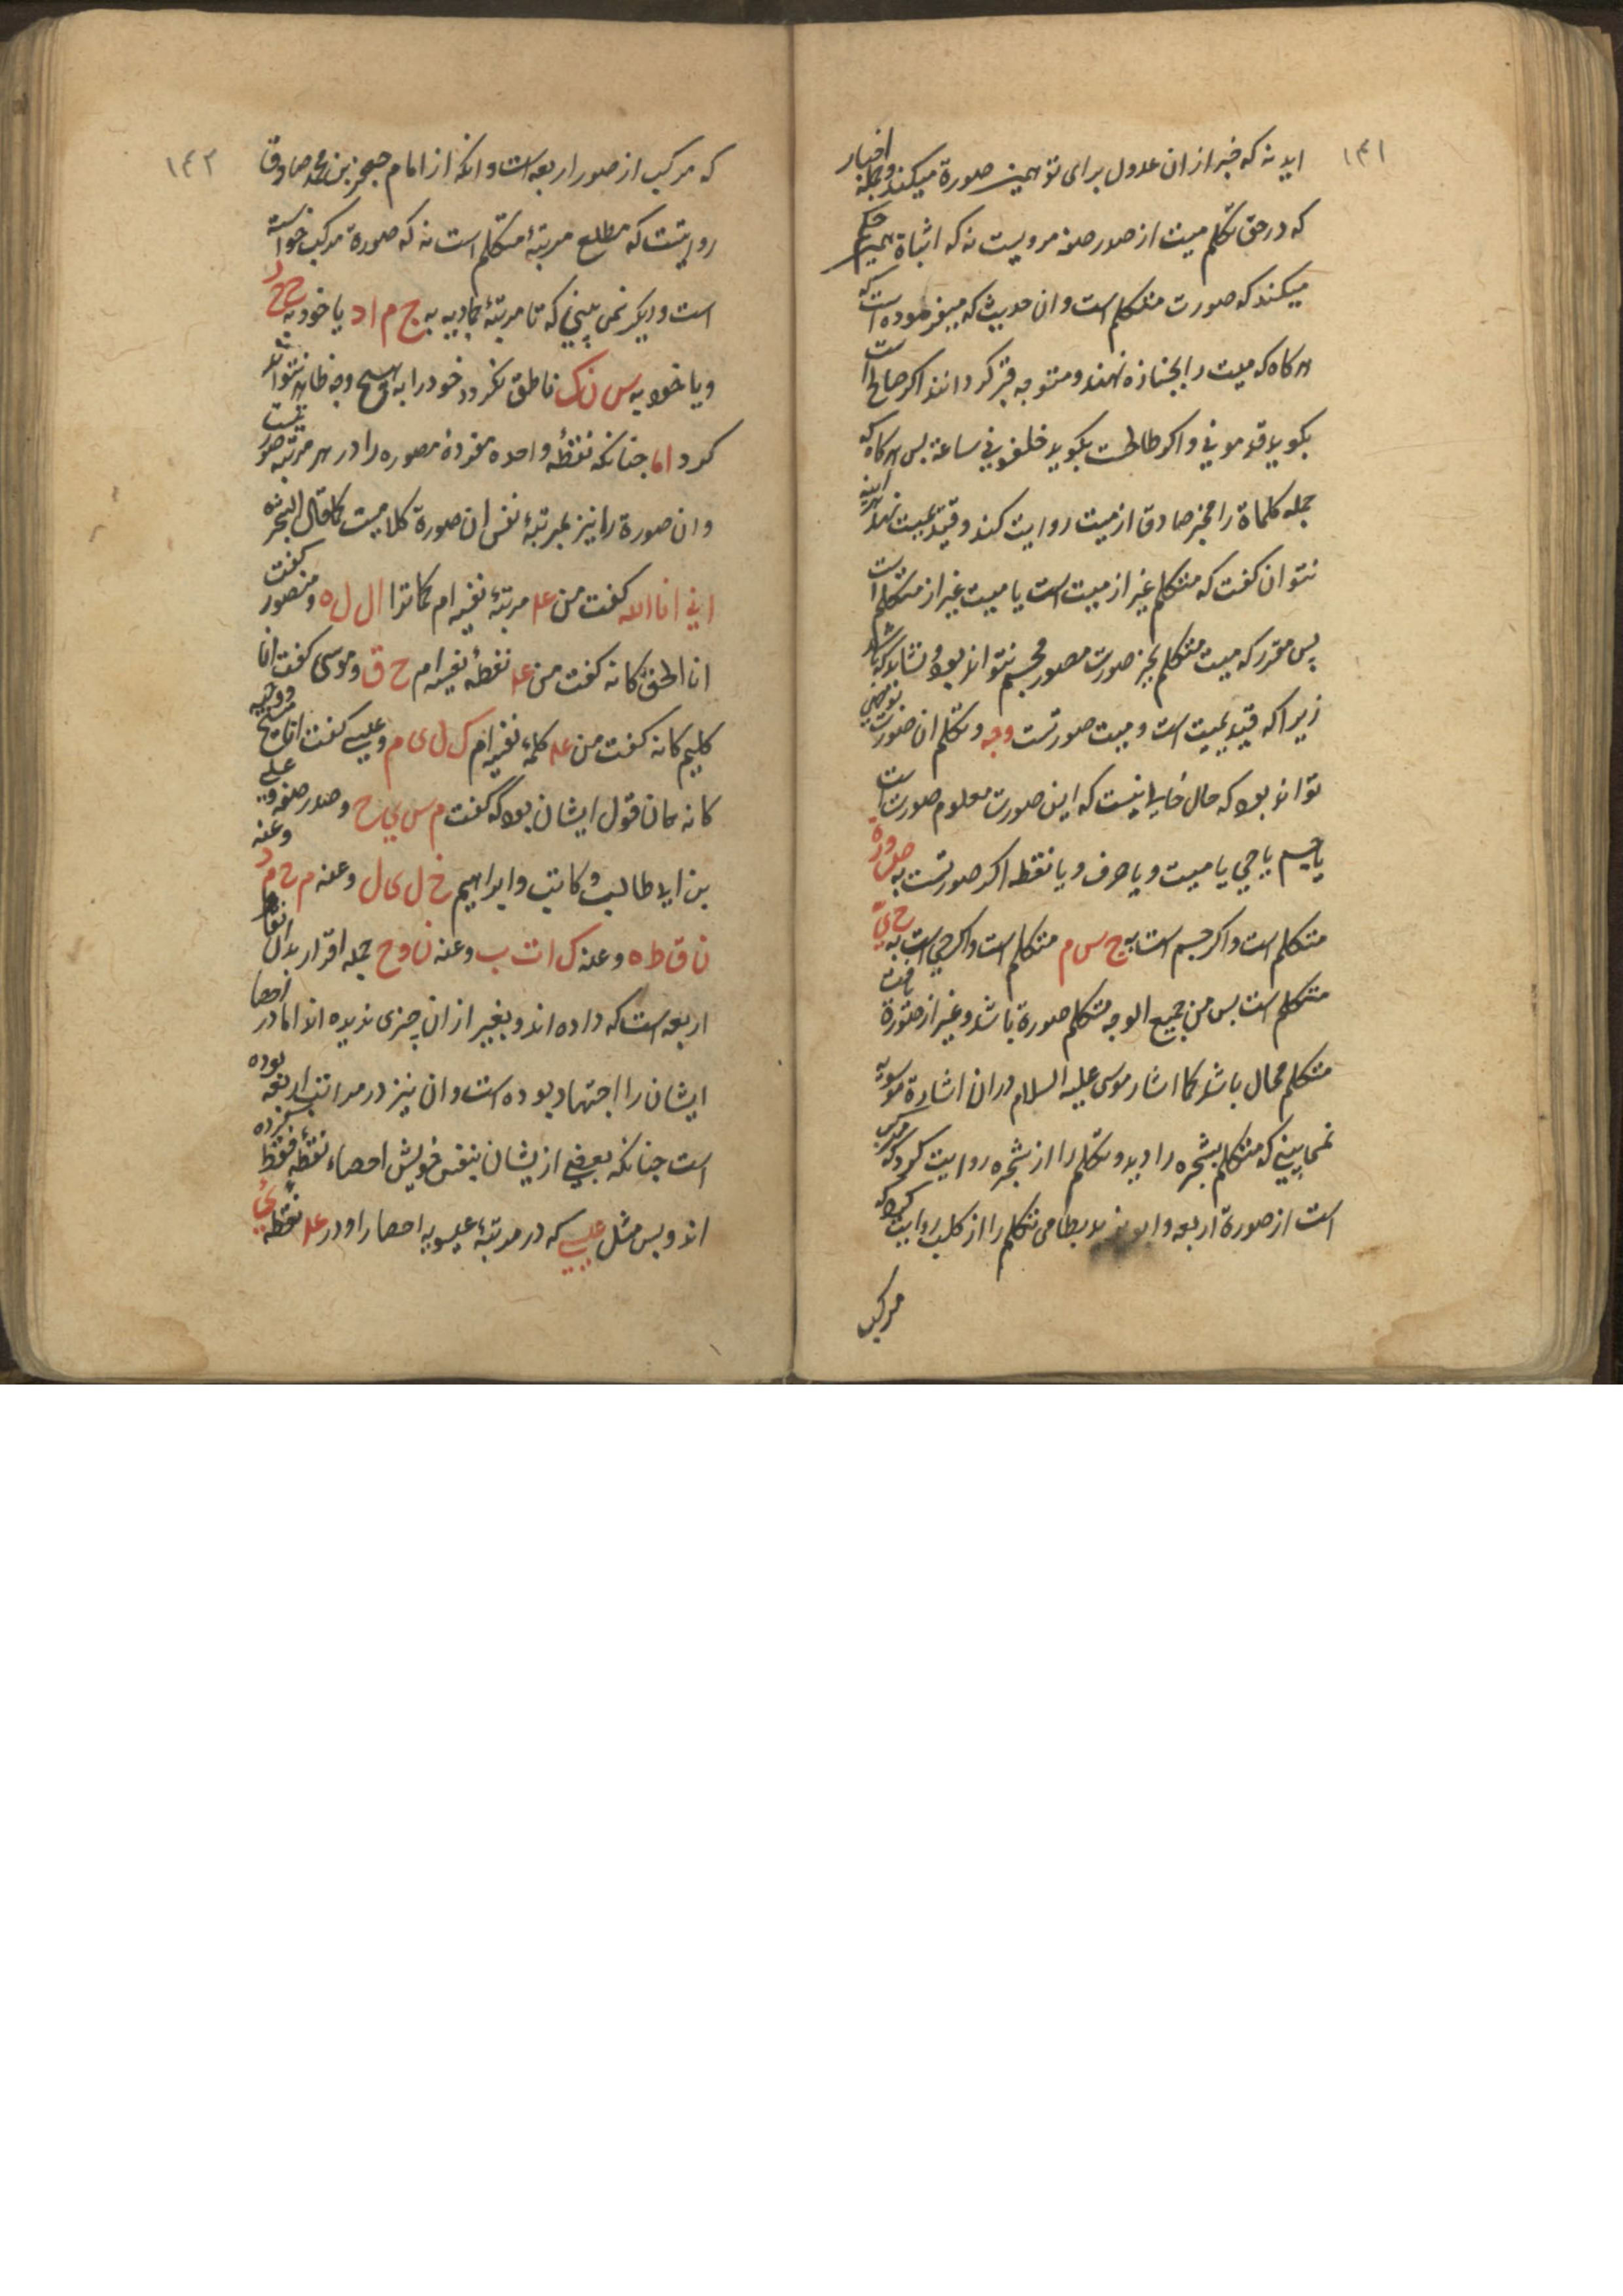 ۱۴۱
اید نه که خبر از ان عدول برای تو همین صورة میکند و جمله اخبار
که در حق تکلم میت از صدر صفه مرویست نه که اثباة همین حکم
میکند که صورت متکلم است و ان حدیث که میفرموده است که
هر کاه که میت را بجنازه نهند و متوجه قبر کردانند اکر صالح است
بکوید قدمونی و اکر طالحست بکوید خلفونی ساعة بس هر کاه که
جمله کلماة را مخبر صادق از میت روایت کند و قید میت نهد
نتوان کفت که متکلم غیر از میت است یا میت غیر از متکلم است
پس مقرر که میت متکلم بجز صورت مصور مجسم نتواند بود و نشاید که
زیرا که قید بمیت است و میت صورتست وجه و تکلم ان صورت
تواند بود که حال خالی نیست که این صورت معلوم صورت است
یا جسم یا حی یا میت و یا حرف و یا نقطه اکر صورتست به ص و ر ة
متکلم است و اکر جسم است به ج س م متکلم است و اکر حی است به ح ی
متکلم است بس من جمیع الوجه متکلم صورة باشد و غیر از صورة
متکلم محال باشد کما اشار موسی علیه السلام در ان اشارة موسویه
نمی بینی که متکلم بشجره را دید و تکلم را از شجره روایت کرد که مرکب
است از صورة اربعه و ابو یزید بسطامی تکلم را از کلب روایت کرد که
مرکب
۱۴۲
که مرکب از صور اربعه است و انکه از امام جعفر بن محمد صادق
روایتست که مطلع مرتبهٔ متکلم است نه که صورة مرکب خواسته
است و دیکر نمی بینی که تا مرتبهٔ جمادیه به ج م ا د یا خود به ح ج ر
و یا خود به س ن ک ناطق نکردد خود را به هیچ وجه ظاهر نتواند
کرد اما جنانکه نقطهٔ واحده مفردهٔ مصوره را در هر مرتبه صورتیست
و ان صورة را نیز بمرتبهٔ نفس ان صورة کلامیست کما قال الشجرة
انی انا الله کفت من عد مرتبهٔ نفیه ام کماترا ا ل ل ه و منصور کفت
انا الحق کانه کفت من عد نقطهٔ نفیه ام ح ق و موسی کفت انا
کلیم کانه کفت من عد کلمهٔ نفیه ام ک ل ی م و عیسی کفت انا مسیح
کانه همان قول ایشان بود که کفت م س ی ح و صدر صفه و علی
بن ابی طالب و کاتب و ابراهیم خ ل ی ل و عنه م ح م د وعنه
ن ق ط ه و عنه ک ا ت ب و عنه ن و ح جمله اقرار بدان
اربعه است که داده اند و بغیر از ان چیزی ندیده اند اما در احصا
ایشان را اجتهاد بوده است و ان نیز در مراتب اربعه بوده
است جنانکه بعضی از یشان بنفس خویش احصاء نقطه فقط کرده
اند و بس مثل عیسی که در مرتبهٔ عیسویه احصا را و در عد نقطه